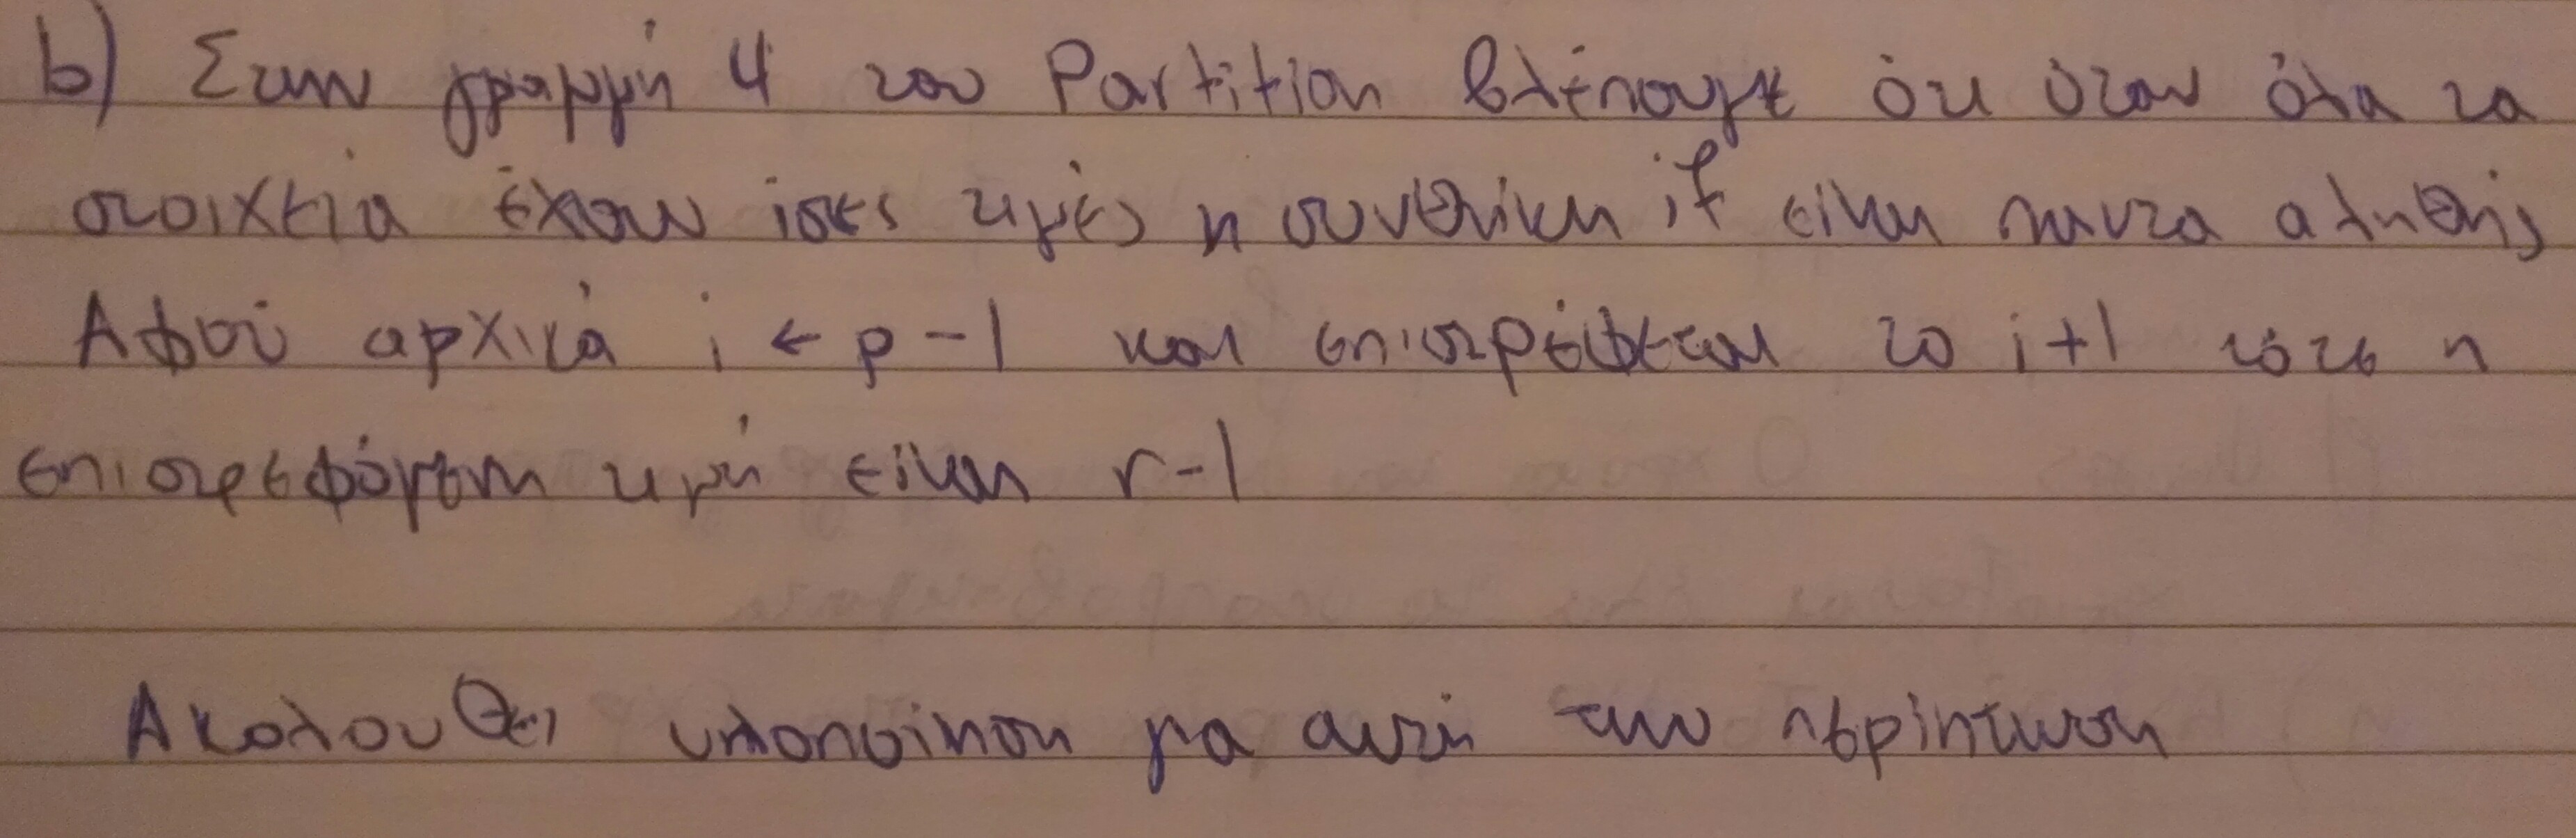 b) Στην γραμμή 4 του Partition βλέπουμε ότι όταν όλα τα
στοιχεία έχουν ίσες τιμές η συνθήκη if είναι παντα αληθής
Αφού αρχικά i ← p - 1 και επιστρέφεται το i+1 τότε η
επιστρεφόμενη τιμή είναι r-1
Ακολουθεί υλοποίηση για αυτή την περίπτωση